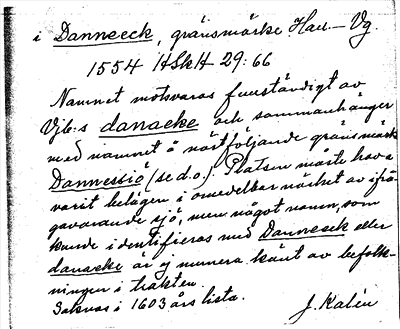 i Danneeck, gränsmärke Hall.- Vg.
1554 HSkH 29:66
Namnet motsvaras fullständigt av
Vjb:s danaeke och sammanhänger
med namnet å nästföljande gränsmärke
Dannessiö (se d.o.). Platsen måste hava
varit belägen i omedelbar närhet av ifrå-
gavarande sjö, men något namn, som
kunde identifieras med Danneeck eller
danaeke är ej numera känt av befolk-
ningen i trakten.
Saknas i 1603 års lista.
J. Kalén